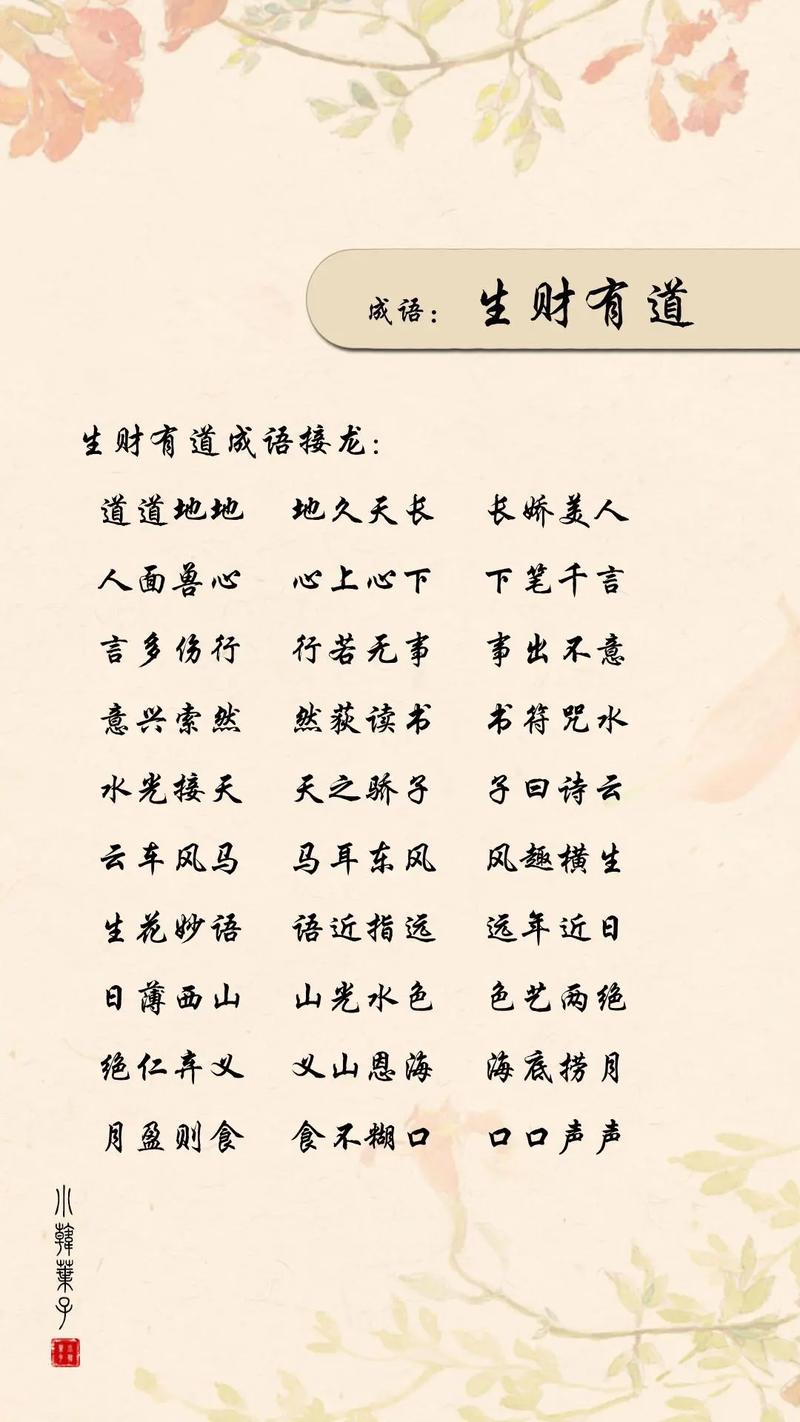 成语：生财有道
生财有道成语接龙：
道道地地 地久天长 长娇美人
人面兽心 心上心下 下笔千言
言多伤行 行若无事 事出不意
意兴索然 然荻读书 书符咒水
水光接天 天之骄子 子曰诗云
云车风马 马耳东风 风趣横生
生花妙语 语近指远 远年近日
日薄西山 山光水色 色艺两绝
绝仁弃义 义山恩海 海底捞月
月盈则食 食不糊口 口口声声
小韓葉子